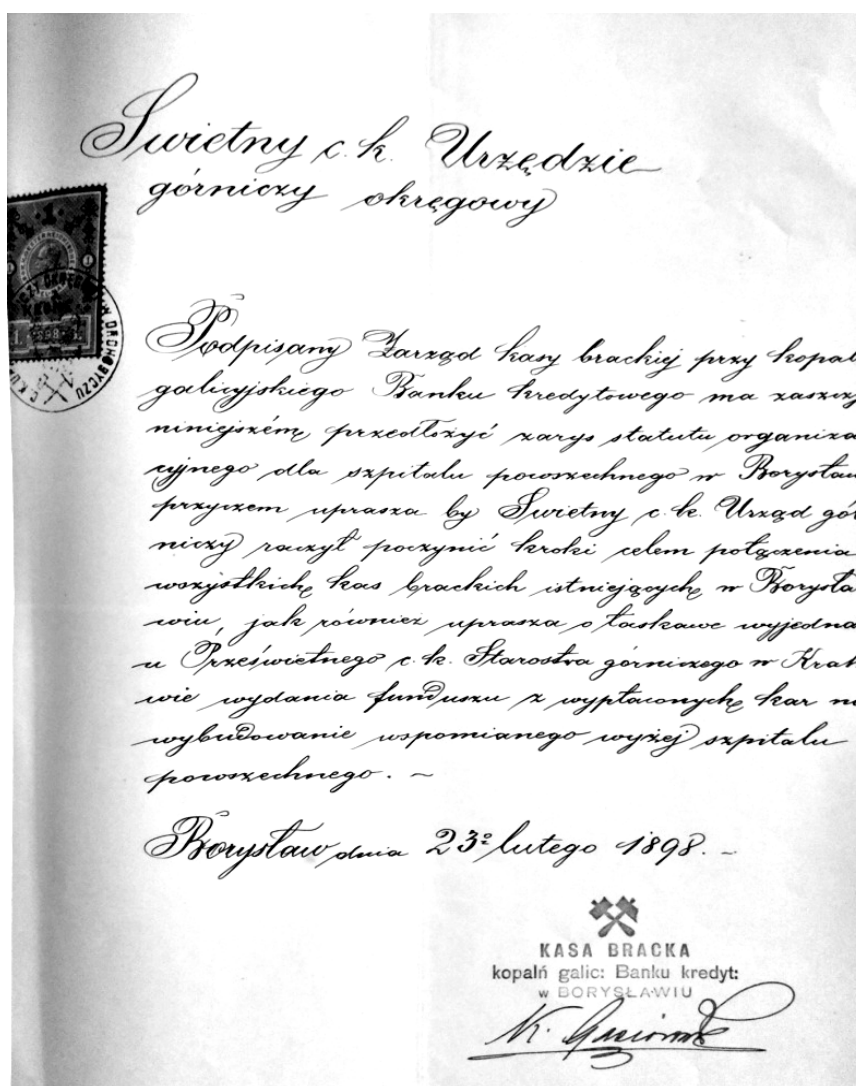 Swietny c. k. Urzędzie
górniczy okręgowy
Podpisany Zarząd kasy brackiej przy kopal
galicyjskiego Banku kredytowego ma zaszczy
niniejszém przedłożyć zarys statutu organiza
cyjnego dla szpitalu powszechnego w Borysław
przyczem uprasza by Swietny c. k. Urząd gór
niczy raczył poczynić kroki celem połączenia
wszystkich kas brackich istniejących w Borysła
wiu, jak również uprasza o łaskawe wyjedna
u Prześwietnego c. k. Starostwa górniczego w Krak
wie wydania funduszu z wypłaconych kar na
wybudowanie wspomianego wyżej szpitalu
powszechnego. ~
Borysław dnia 23º lutego 1898. ~
KASA BRACKA
kopalń galic: Banku kredyt:
w BORYSŁAWIU